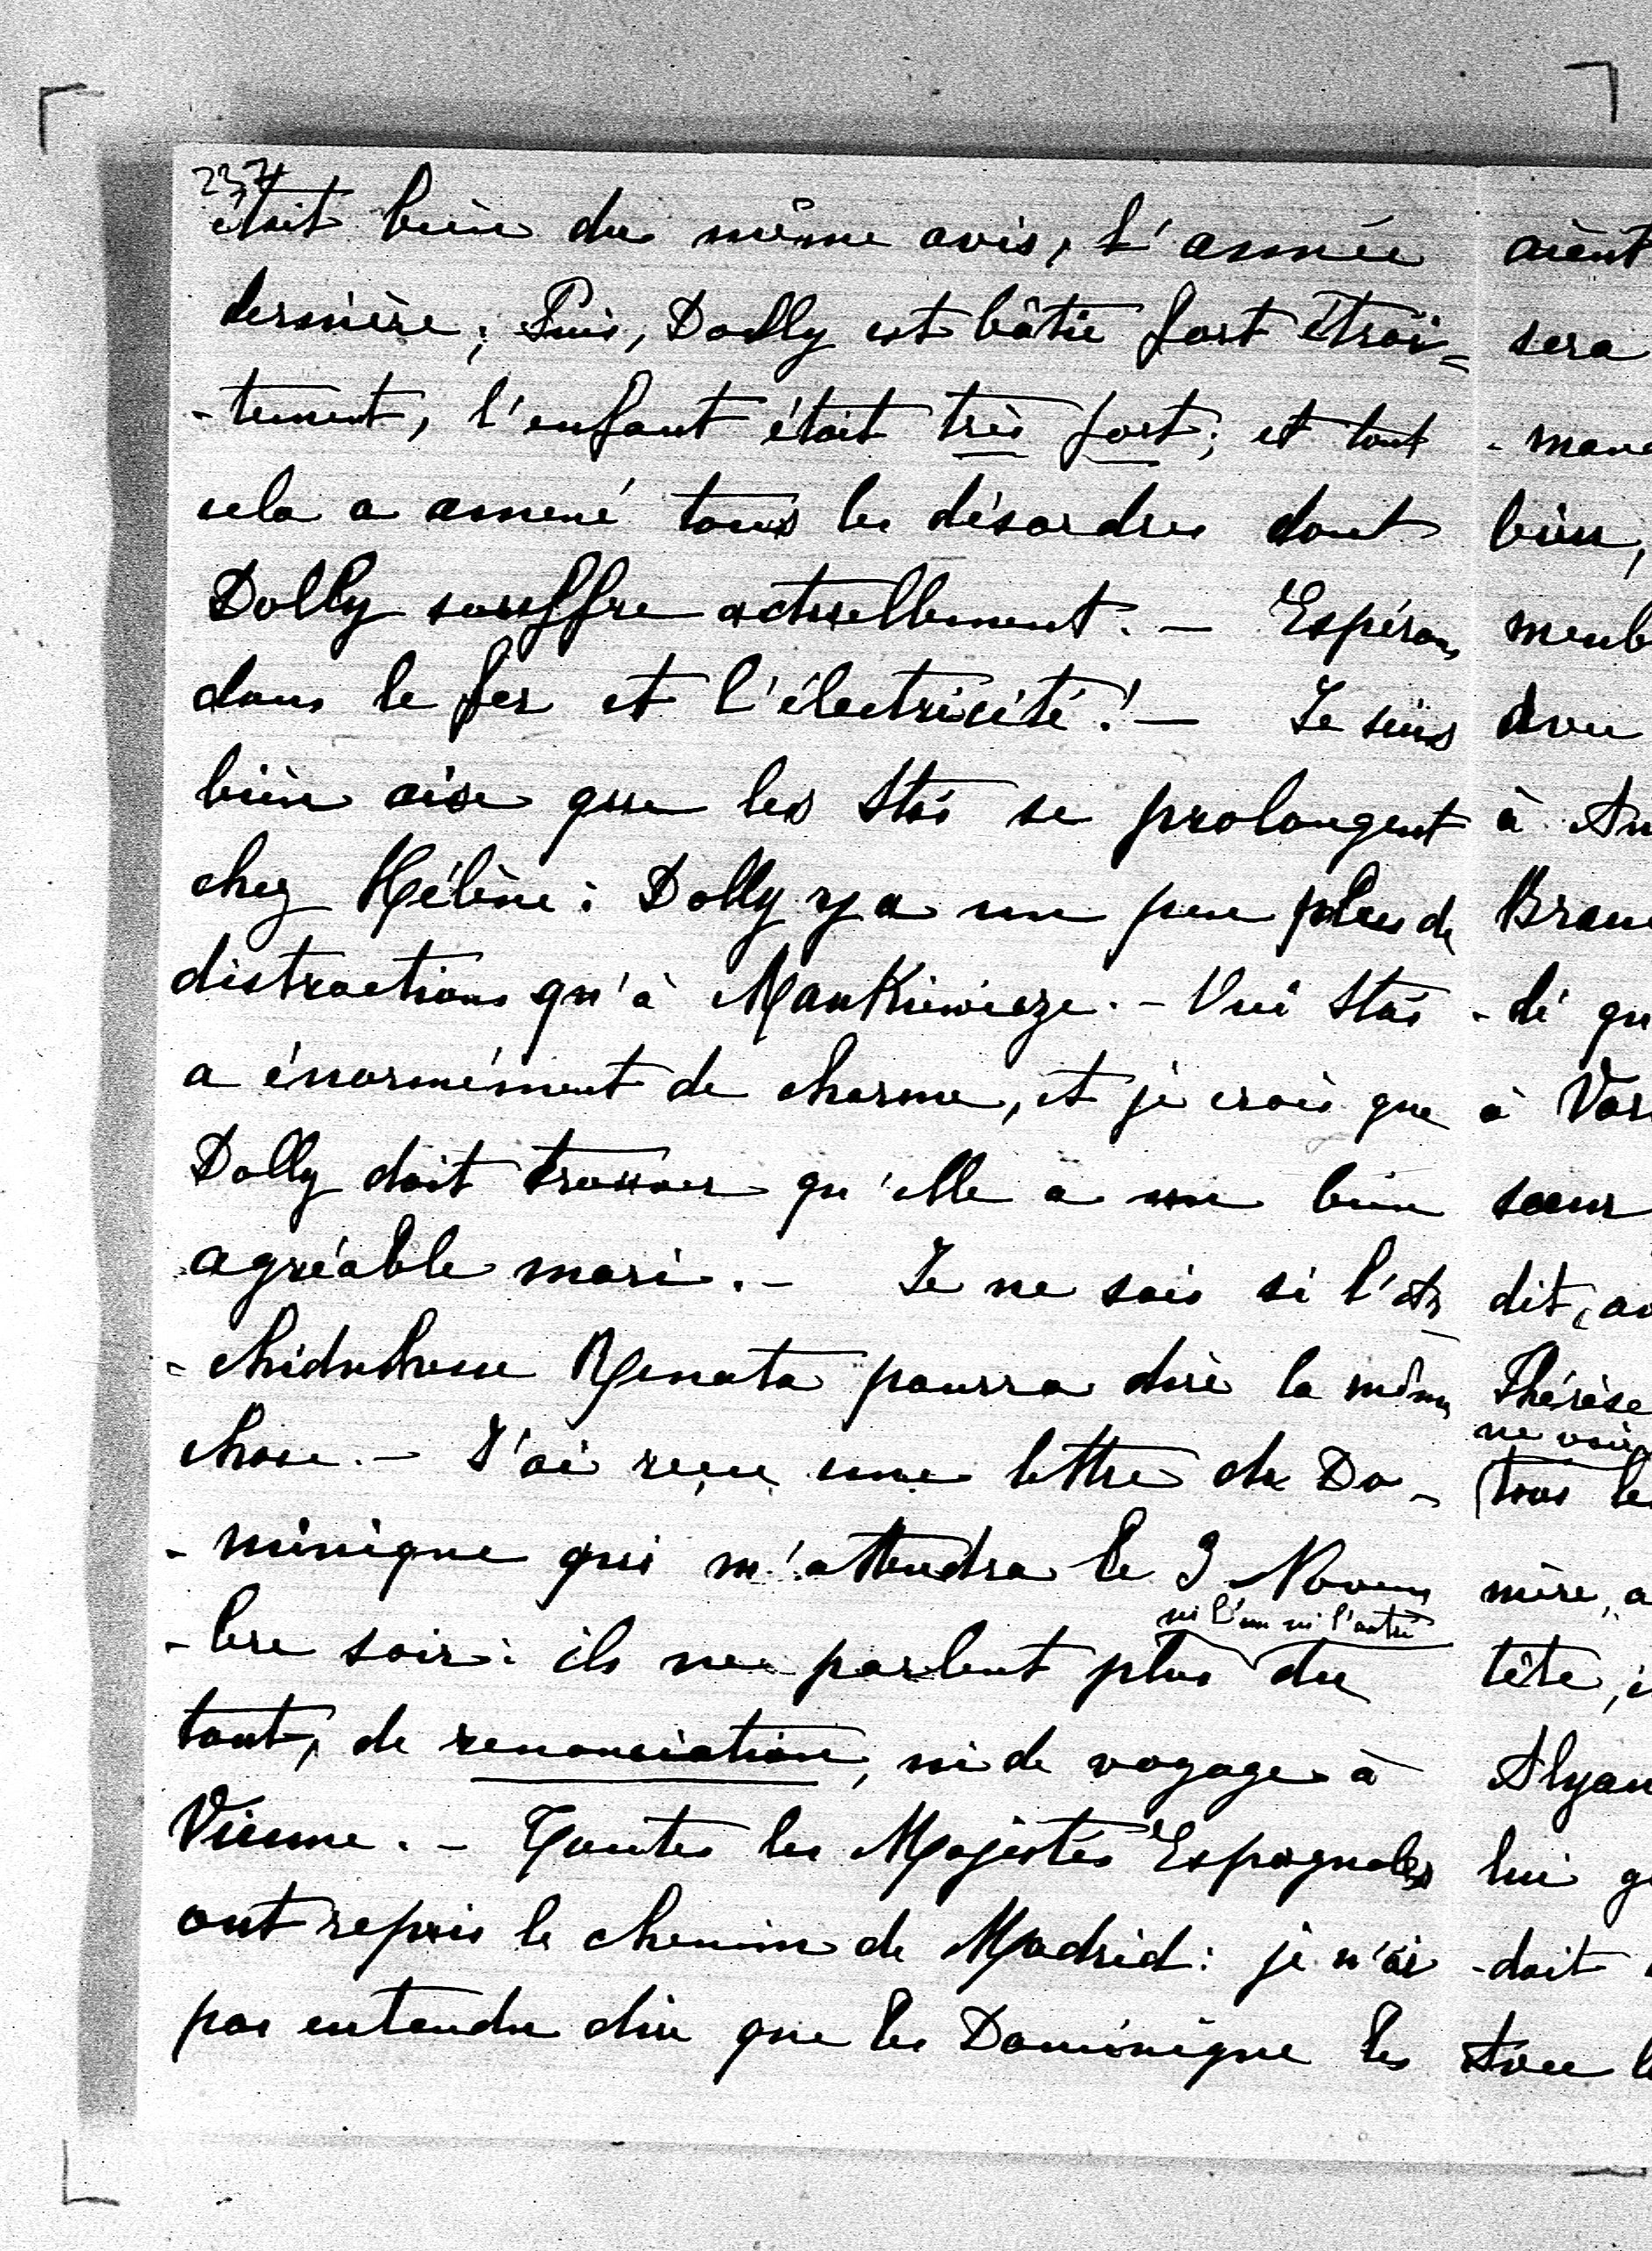 237
était bien du même avis, l'année
dernière; Puis, Dolly est bâtie fort étroi=
-tement, l'enfant était très fort; et tout
cela a amené tous les désordres dont
Dolly souffre actuellement. — Espérons
dans le fer et l'électricité! — Je suis
bien aise que les Stás se prolongent
chez Hélène: Dolly y a un peu plus de
distractions qu'à Mankiewicze. — Oui Stás
a énormément de charme, et je crois que
Dolly doit trouver qu'elle a un bien
agréable mari. — Je ne sais si l'Ar
-chiduchesse Renata pourra dire la même
chose. — J'ai reçu une lettre de Do-
-minique qui m'attendra le 3 Novem
ni l'un ni l'autre
-bre soir: ils ne parlent plus du
tout, de renonciation, ni de voyage à
Vienne. — Toutes les Majestés Espagnoles
ont repris le chemin de Madrid: je n'ai
pas entendu dire que les Dominique les
aient
sera
bien,
à
-dé qu
à
sœur
dit, av
Thérèse
ne voir
tous le
mère, a
tête, i
lui
-doit